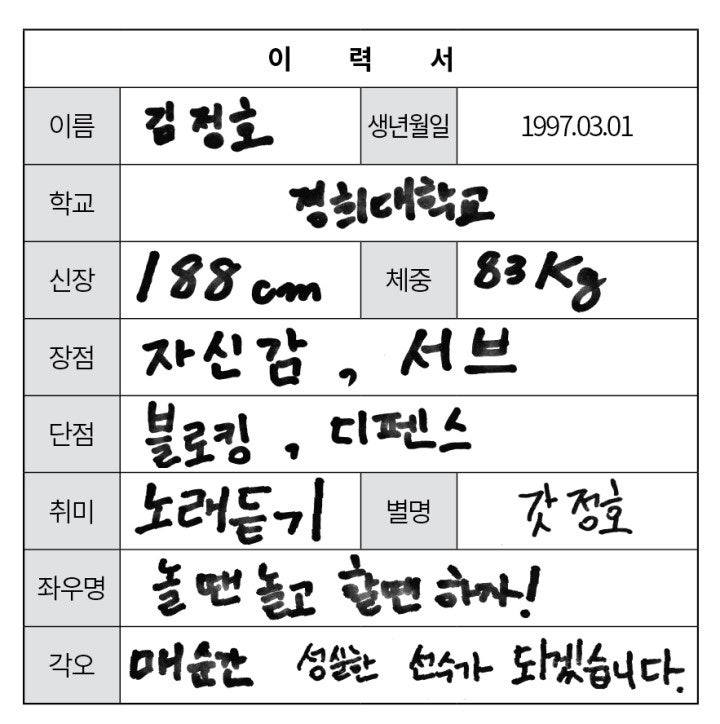 이 력 서
이름 김정호 생년월일 1997.03.01
학교 경희대학교
신장 188cm 체중 83Kg
장점 자신감, 서브
단점 블로킹, 디펜스
취미 노래듣기 별명 갓정호
좌우명 놀땐 놀고 할땐 하자!
각오 매순간 성실한 선수가 되겠습니다.